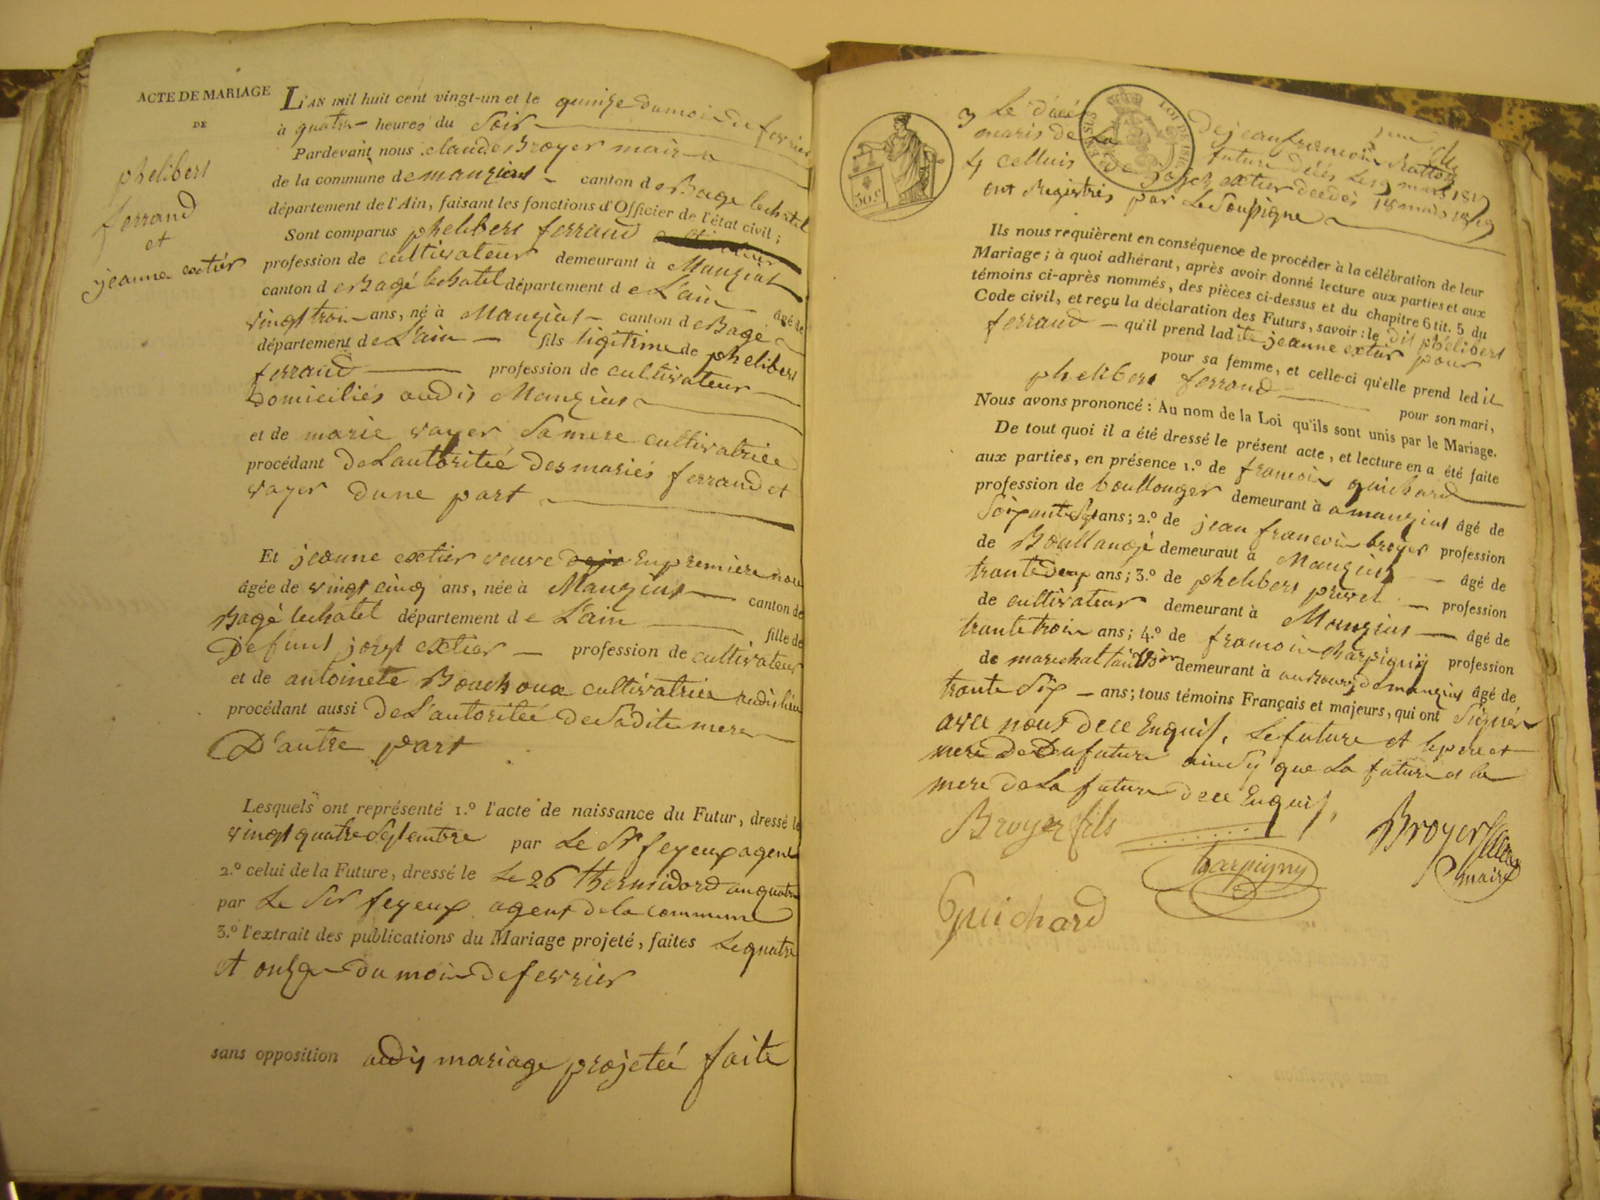 ACTE DE MARIAGE
DE
phelibert
ferrand
et
jeanne extier
L'AN mil huit cent vingt-un et le quinze du mois de fevrier
à quatre heures du Soir
Pardevant nous claude Broyer maire
de la commune de manziat canton de Bagé lechatel
département de l'Ain, faisant les fonctions d'Officier de l'état civil;
Sont comparus phelibert ferrand
profession de cultivateur demeurant à Manziat
canton de Bagé lechatel département de L'ain âgé de
vingt trois ans, né à Manziat canton de Bagé
département de L'ain fils ligitime de phelibert
ferrand profession de cultivateur
Domiciliés audit Manziat
et de marie vayer Sa mere cultivatrice
procédant De L'autoritée des mariés ferrand et
vayer d'une part
Et jeanne extier veuve En premiere
âgée de vingt cinq ans, née à Manziat canton de
Bagé lechatel département de L'ain fille de
Defunt extier profession de cultivateur
et de antoinete Bouchoux cultivatrice audit lieu
procédant aussi De L'autoritée de Sadite mere
D'autre part
Lesquels ont représenté 1.º l'acte de naissance du Futur, dressé le
vingt quatre Septembre par Le Sr feyeux agent
2.º celui de la Future, dressé le Le 26 thermidord an quatre
par Le Sir feyeux agent de la commune
3.º l'extrait des publications du Mariage projeté, faites Le quatre
et onze du mois de fevrier
sans opposition audit mariage projetée faite
3 Le décé de jean francois Ratton
maris de La future délés Le 9 mars 1817
4 celluis de extier decedes 1819
ont Registrés par Le Soussigne
Ils nous requièrent en conséquence de procéder à la célébration de leur
Mariage; à quoi adhérant, après avoir donné lecture aux parties et aux
témoins ci-après nommés, des pièces ci-dessus et du chapitre 6 tit. 5 du
Code civil, et reçu la déclaration des Futurs, savoir: le dit phelibert
ferrand qu'il prend ladite jeanne extier pour
pour sa femme, et celle-ci qu'elle prend led it
phelibert ferrand pour son mari,
Nous avons prononcé: Au nom de la Loi qu'ils sont unis par le Mariage.
De tout quoi il a été dressé le présent acte, et lecture en a été faite
aux parties, en présence 1.º de francois guichard
profession de boullonger demeurant à a manziat âgé de
Soixante Sept ans; 2.º de jean francois broyer profession
de Boullangé demeurant à Manziat âgé de
trante deux ans; 3.º de phelibert privet profession
de cultivateur demeurant à Manziat âgé de
trante trois ans; 4.º de francois Charpigny profession
de marichal demeurant à au Bourg de manziat âgé de
trante Six ans; tous témoins Français et majeurs, qui ont Signés
avec nous De ce Enquis, Le future et le pere et
mere de La future ainsy que La future et la
mere de La future De ce Enquis,
Broyer fils
Charpigny
Broyer
maire
Guichard